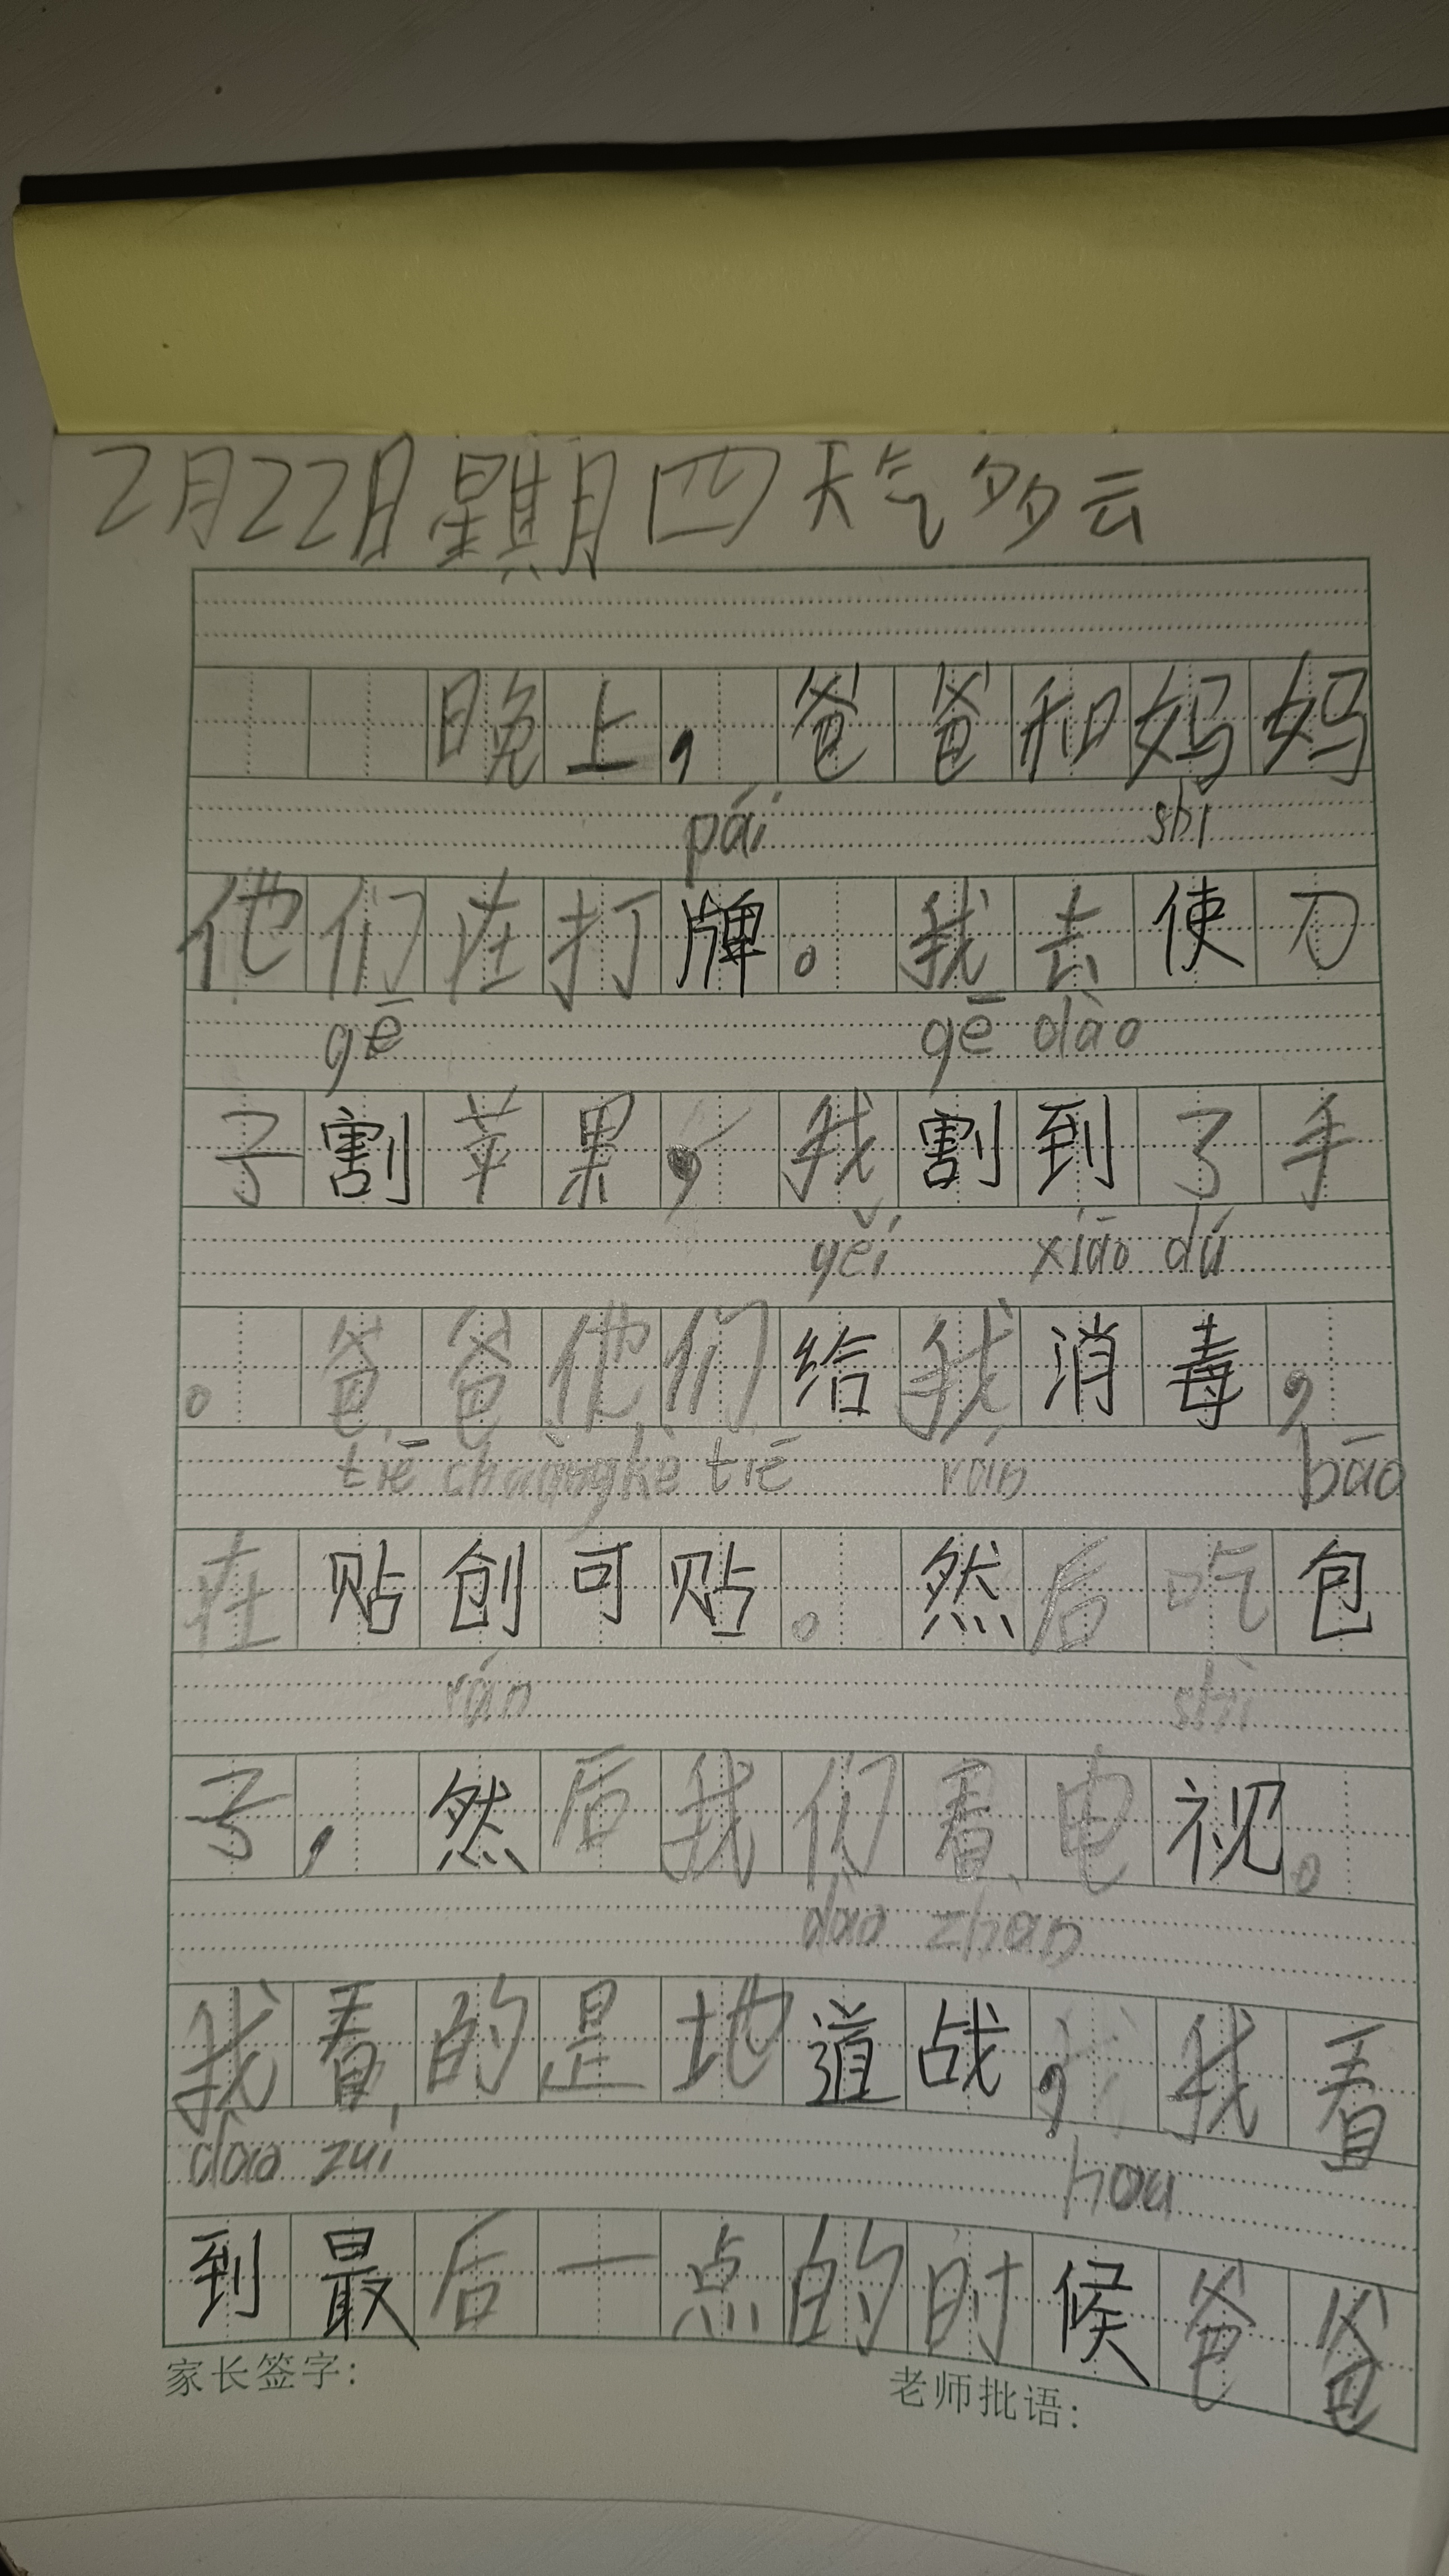 2月22日星期四天气多云
晚上,爸爸和妈妈
pái shǐ
他们在打牌。我去使刀
gē gē dào
子割苹果,我割到了手
gěi xiāo dú
。爸爸他们给我消毒,
tiē chuàngkě tiē rán bāo
在贴创可贴。然后吃包
rán shì
子,然后我们看电视。
dào zhàn
我看的是地道战,我看
dào zuì hou
到最后一点的时候爸爸
家长签字: 老师批语: